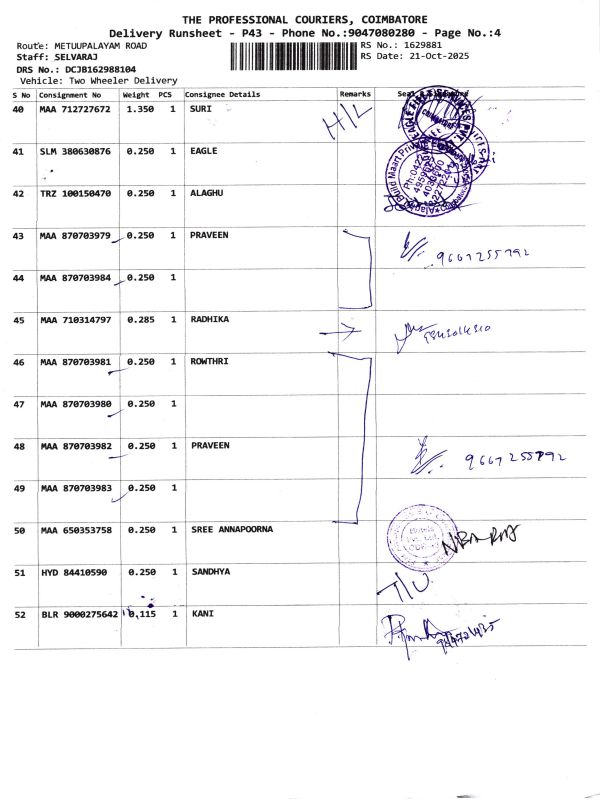 THE PROFESSIONAL COURIERS, COIMBATORE
Delivery Runsheet - P43 - Phone No.:9047080280 - Page No.:4
Route: METUUPALAYAM ROAD RS No.: 1629881
Staff: SELVARAJ RS Date: 21-Oct-2025
DRS No.: DCJB162988104
Vehicle: Two Wheeler Delivery
S No Consignment No Weight PCS Consignee Details Remarks
40 MAA 712727672 1.350 1 SURI H/L
41 SLM 380630876 0.250 1 EAGLE
42 TRZ 100150470 0.250 1 ALAGHU
43 MAA 870703979 0.250 1 PRAVEEN 9667255792
44 MAA 870703984 0.250 1
45 MAA 710314797 0.285 1 RADHIKA
46 MAA 870703981 0.250 1 ROWTHRI
47 MAA 870703980 0.250 1
48 MAA 870703982 0.250 1 PRAVEEN 9667255792
49 MAA 870703983 0.250 1
50 MAA 650353758 0.250 1 SREE ANNAPOORNA
51 HYD 84410590 0.250 1 SANDHYA
52 BLR 9000275642 0.115 1 KANI